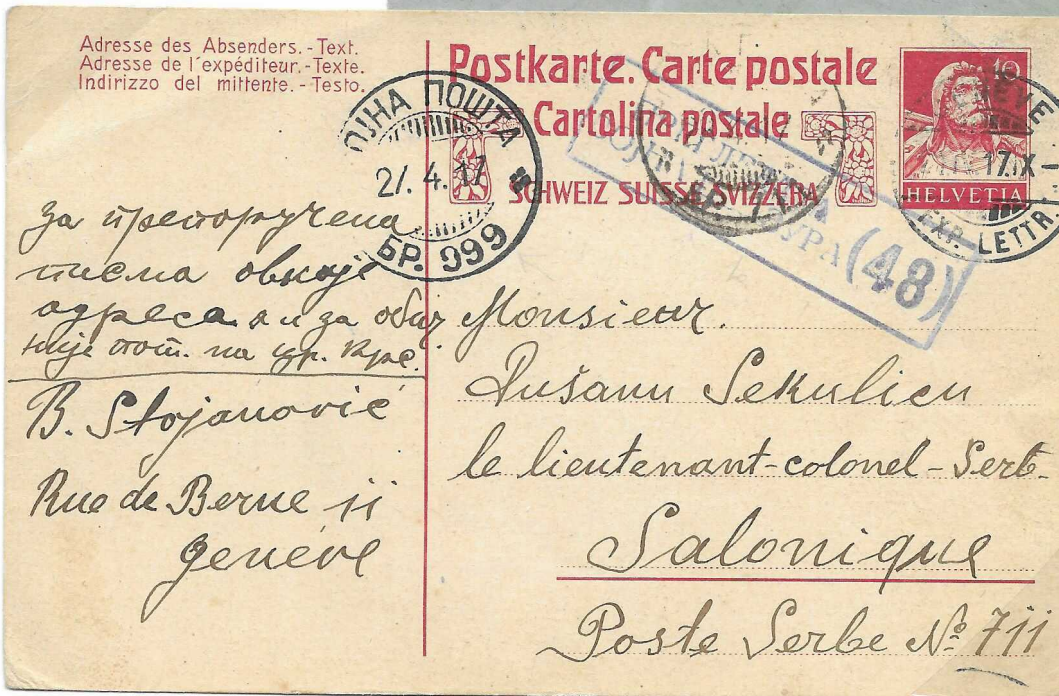 Adresse des Absenders. - Text.
Adresse de l'expéditeur. - Texte.
Indirizzo del mittente. - Testo.
Postkarte. Carte postale
Cartolina postale
SCHWEIZ SUISSE SVIZZERA
10
HELVETIA
17.IX
EXP. LETTR
ПОШТА
21.4.17
БР. 999
(48)
за препоручена
писма овкоје
адреса а и за обич
није
B. Stojanović
Rue de Berne 11
Genève
Monsieur.
Dušanu Sekulicu
le lieutenant-colonel-Serb.
Salonique
Poste Serbe № 711